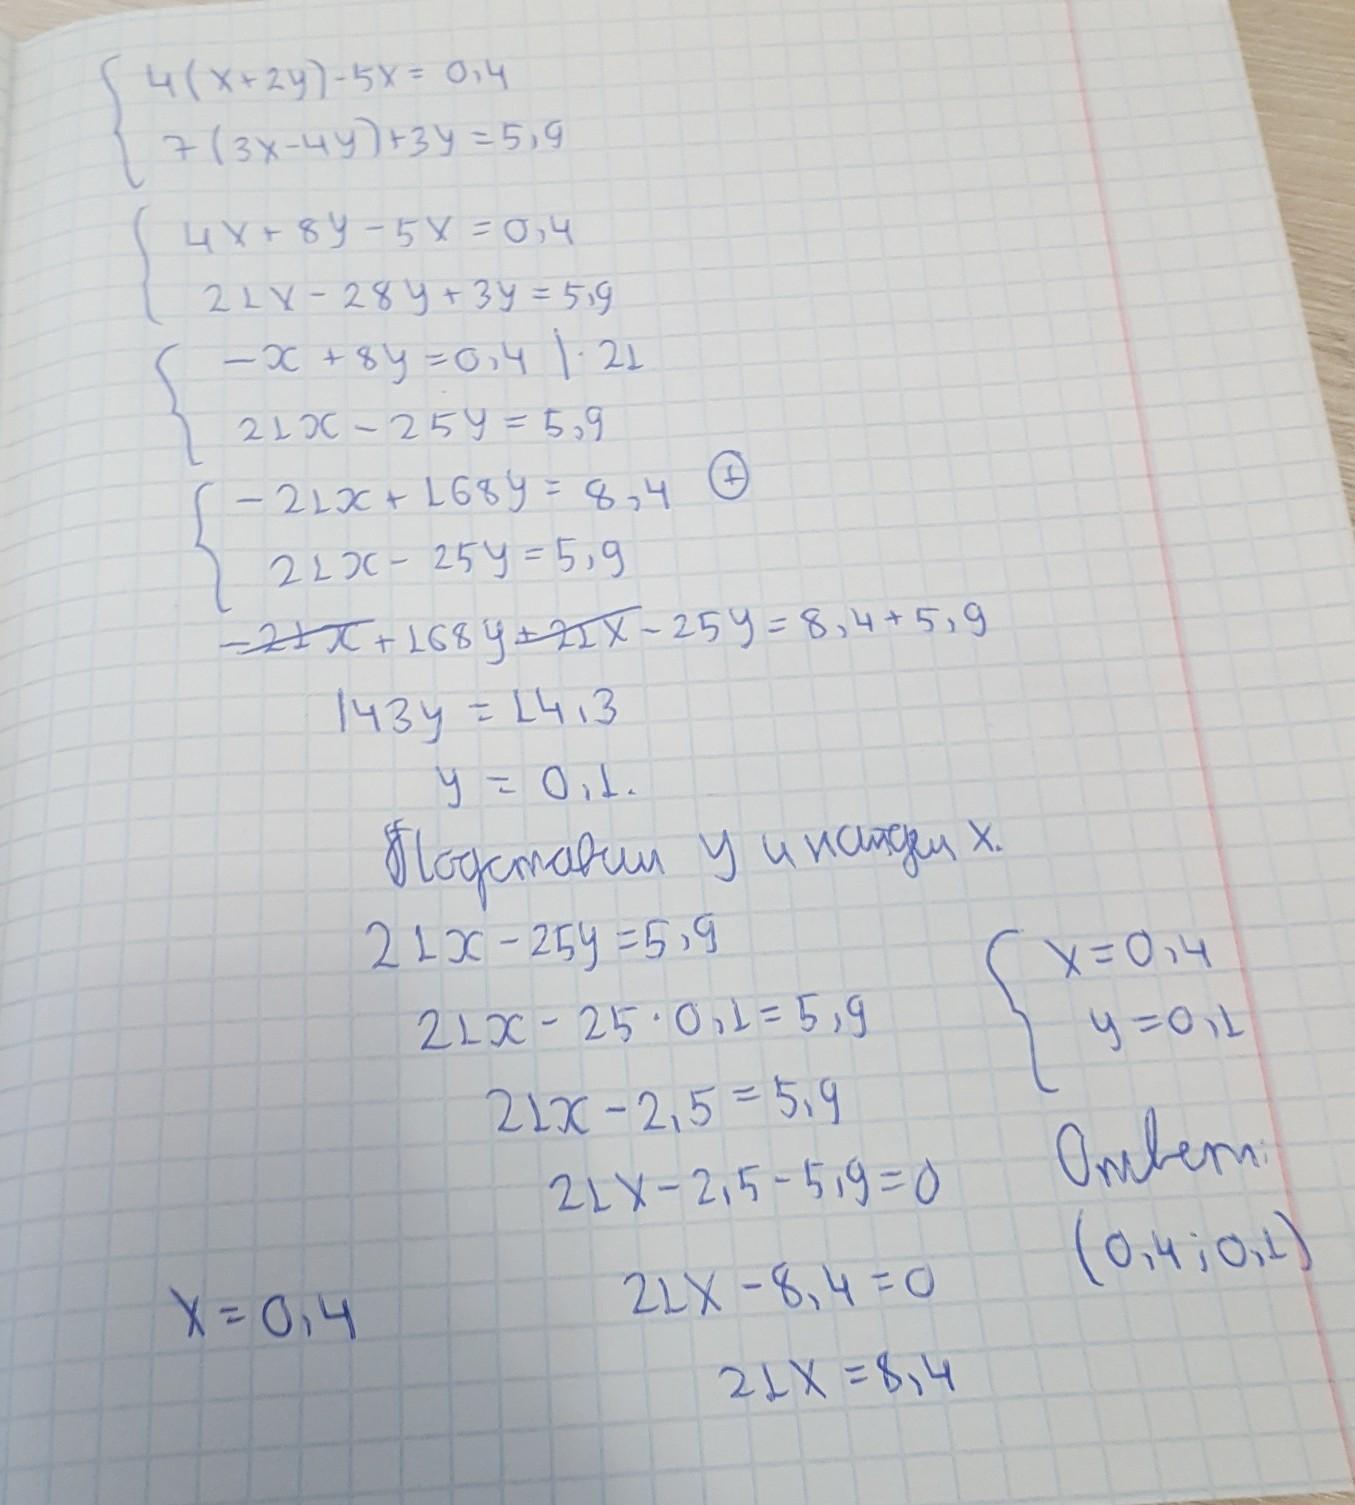 4(x+2y)-5x=0,4
7(3x-4y)+3y=5,9
4x+8y-5x=0,4
21x-28y+3y=5,9
-x+8y=0,4 |·21
21x-25y=5,9
-21x+168y=8,4 (+)
21x-25y=5,9
-21x+168y+21x-25y=8,4+5,9
143y=14,3
y=0,1.
Подставим y и найдем x.
21x-25y=5,9
21x-25·0,1=5,9
21x-2,5=5,9
21x-2,5-5,9=0
21x-8,4=0
21x=8,4
x=0,4
x=0,4
y=0,1
Ответ:
(0,4;0,1)